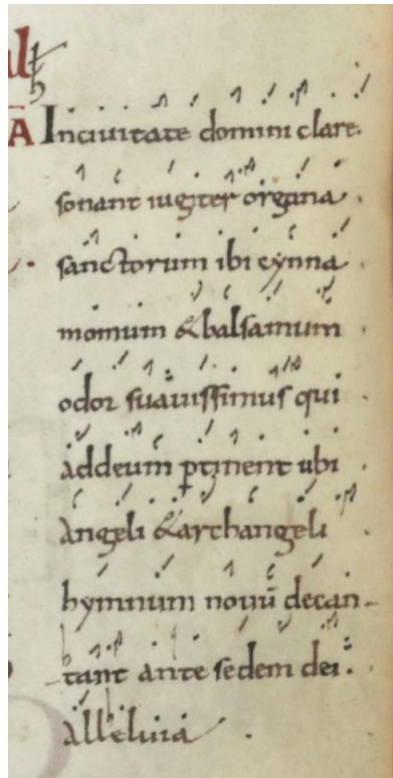 Inciuitate domini clare.
sonant iugiter organa.
sanctorum ibi cynna
momum &balsamum
odor suauissimus qui
addeum ꝑtinent ubi
angeli &archangeli
hymnum nouū decan-
tant ante sedem dei.
alleluia.